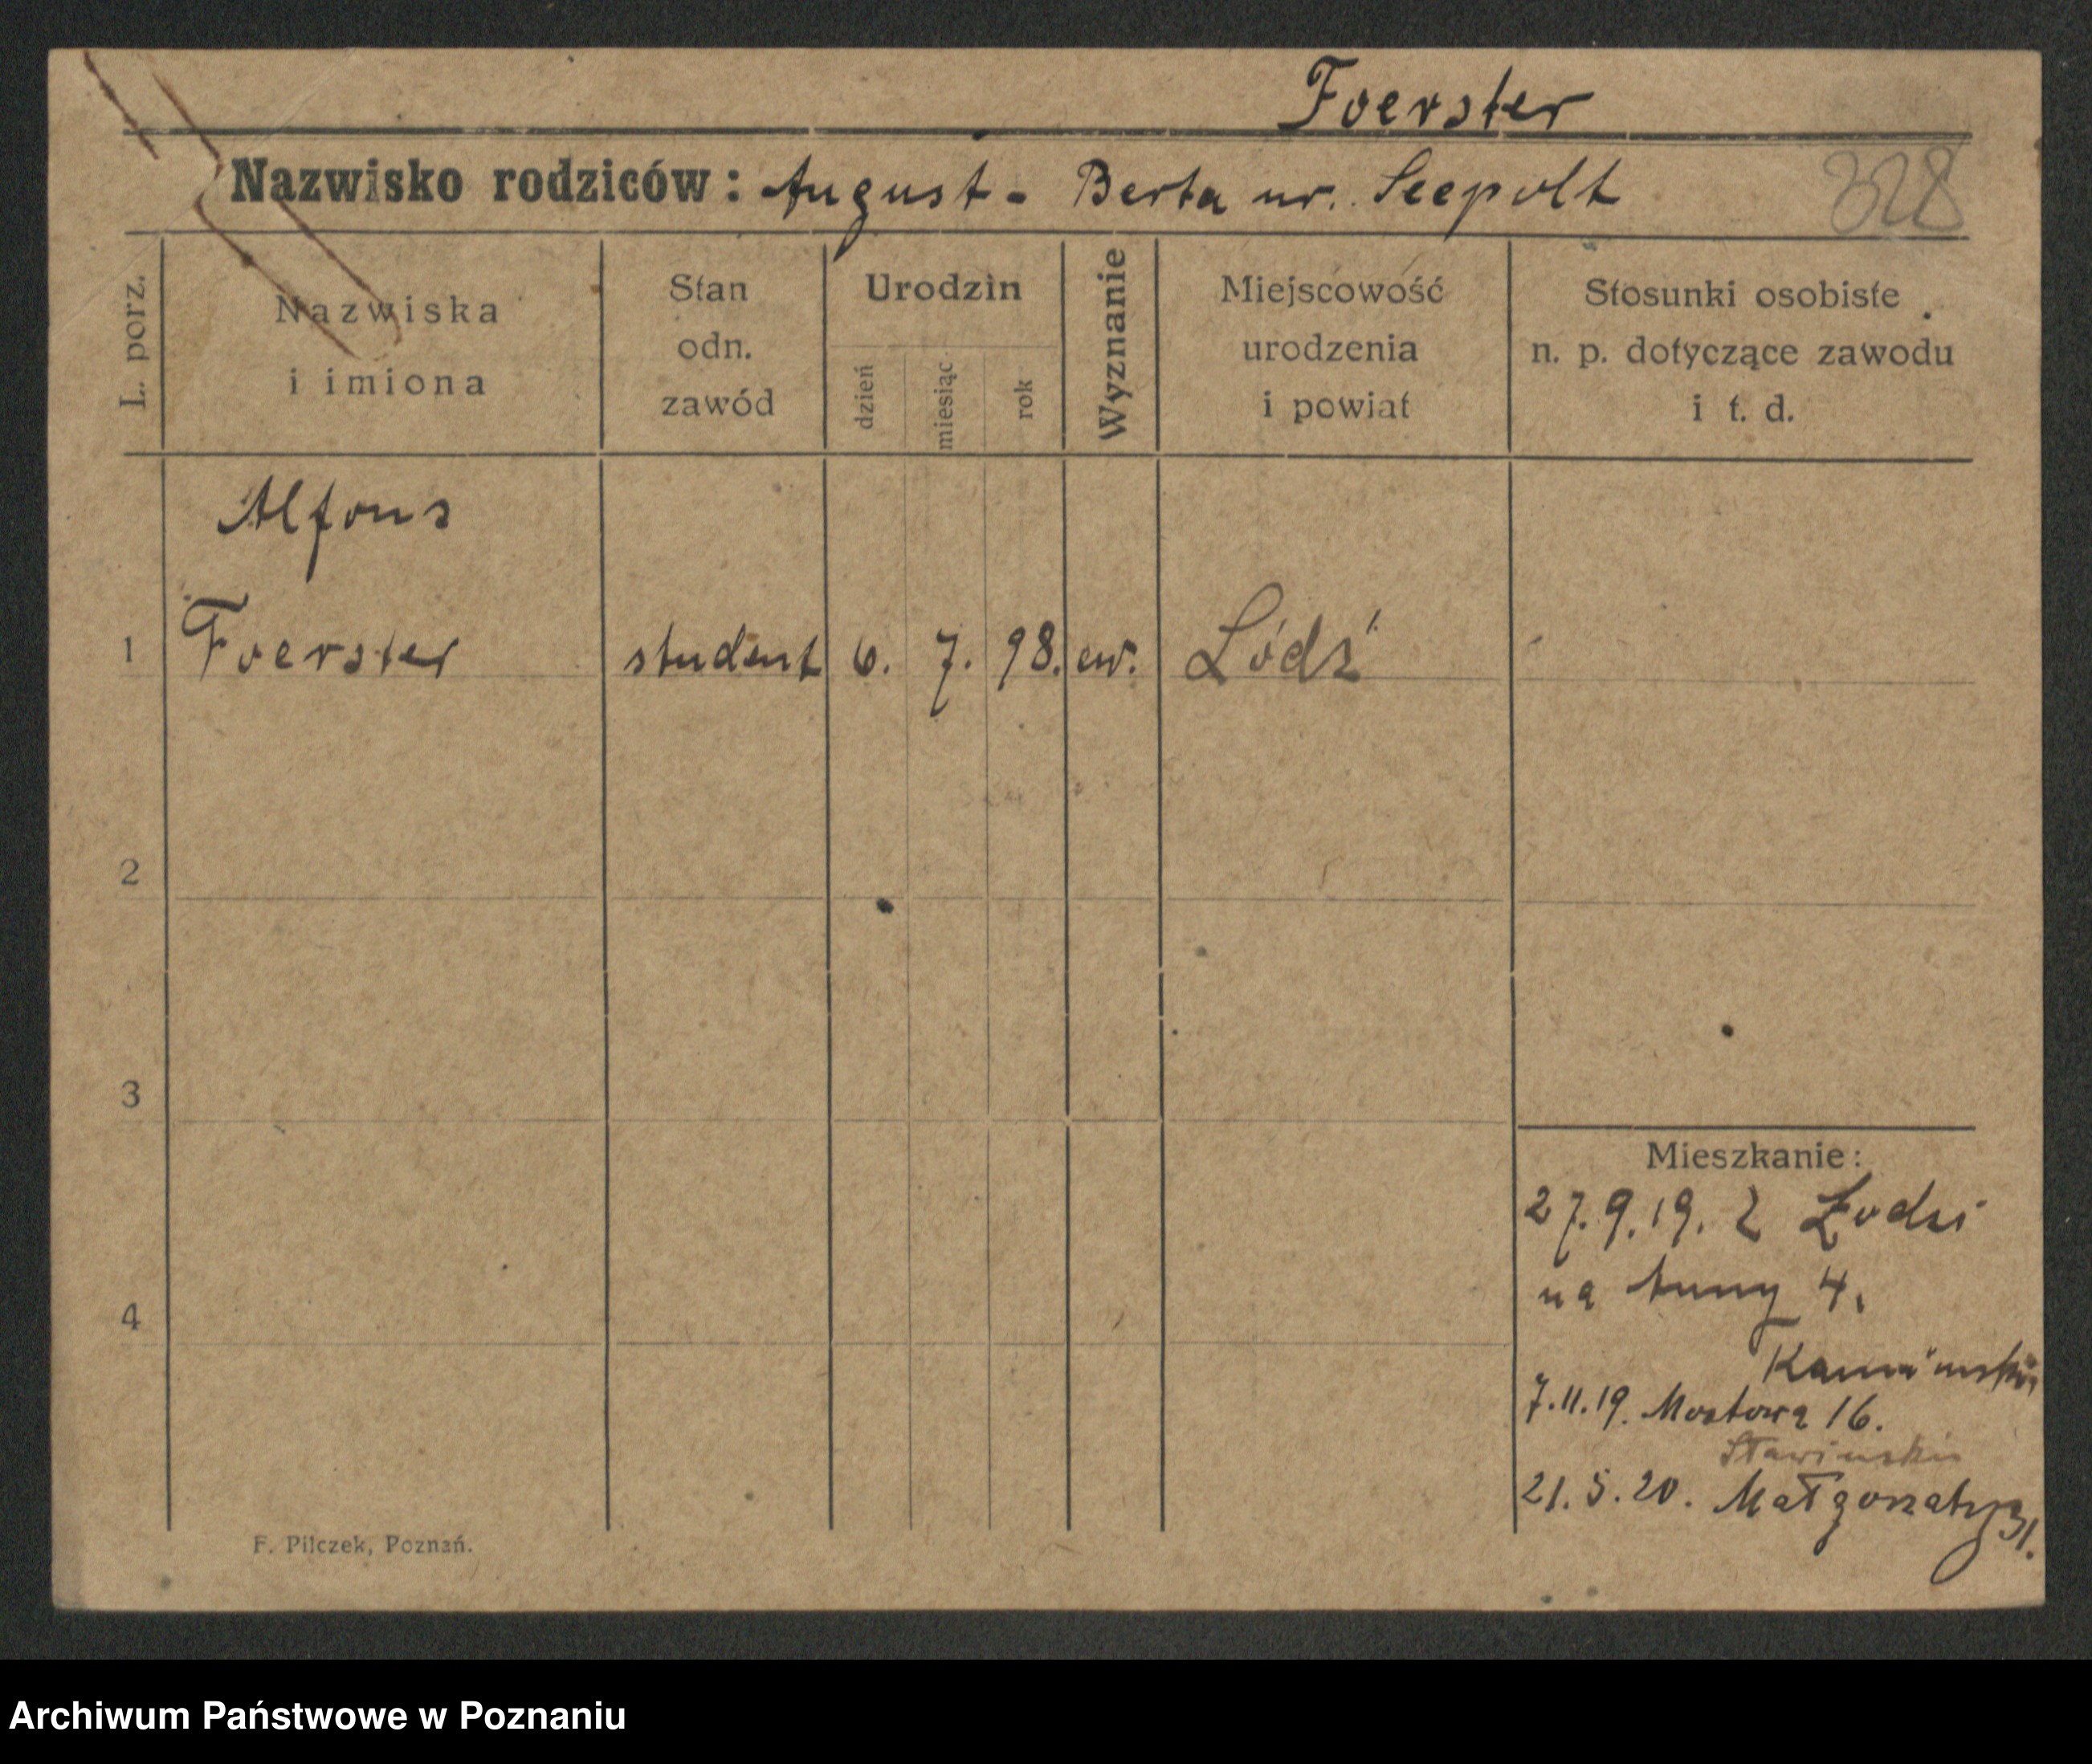 Foerster
Nazwisko rodziców: August - Berta ur. Seepolt
328
L. porz.
Nazwiska
i imiona
Stan
odn.
zawód
Urodzin
dzień
miesiąc
rok
Wyznanie
Miejscowość
urodzenia
i powiat
Stosunki osobiste
n. p. dotyczące zawodu
i t. d.
Alfons
1 Foerster student 6. 7. 98. ew. Łódź
2
3
4
Mieszkanie:
27.9.19. z Łodzi
na Anny 4.
Kamińskiej
7.11.19. Mostowa 16.
21.5.20. Małgorzaty 31.
F. Pilczek, Poznań.
Archiwum Państwowe w Poznaniu